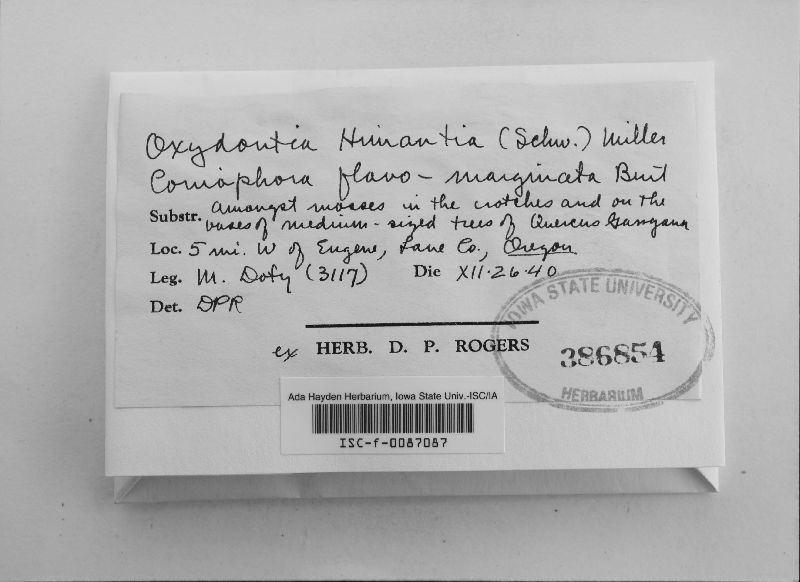 Oxydontia Himantia (Schw.) Miller
Coniophora flavo-marginata Burt
Substr. amongst mosses in the crotches and on the
bases of medium-sized trees of Quercus Garryana
Loc. 5 mi. W of Eugene, Lane Co., Oregon
Leg. M. Doty (3117) Die XII.26.40
Det. DPR
ex HERB. D. P. ROGERS
IOWA STATE UNIVERSITY
386854
HERBARIUM
Ada Hayden Herbarium, Iowa State Univ.-ISC/IA
ISC-f-0087087